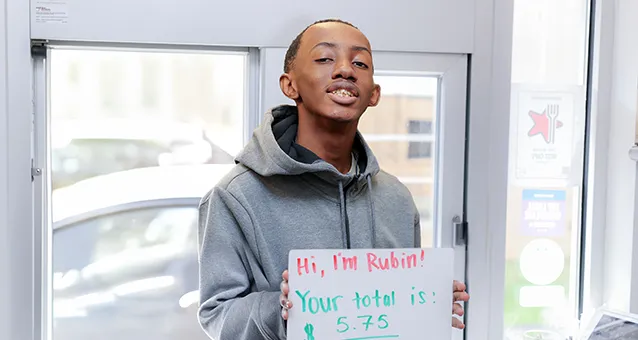 Hi, I'm Rubin!
Your total is:
$ 5.75